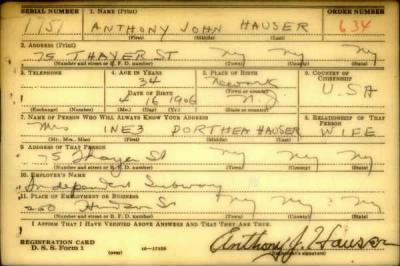 SERIAL NUMBER 1. NAME (Print) ORDER NUMBER
1751 ANTHONY JOHN HAUSER 634
(First) (Middle) (Last)
2. ADDRESS (Print)
75 THAYER ST NY NY NY
(Number and street or R. F. D. number) (Town) (County) (State)
3. TELEPHONE 4. AGE IN YEARS 5. PLACE OF BIRTH 6. COUNTRY OF CITIZENSHIP
34 Newark
DATE OF BIRTH (Town or county)
4 16 1906 N.J. USA
(Exchange) (Number) (Mo.) (Day) (Yr.) (State or country)
7. NAME OF PERSON WHO WILL ALWAYS KNOW YOUR ADDRESS 8. RELATIONSHIP OF THAT PERSON
Mrs INEZ DORTHEA HAUSER WIFE
(Mr., Mrs., Miss) (First) (Middle) (Last)
9. ADDRESS OF THAT PERSON
75 Thayer St NY NY NY
(Number and street or R. F. D. number) (Town) (County) (State)
10. EMPLOYER'S NAME
Independent Subway
11. PLACE OF EMPLOYMENT OR BUSINESS
Hudson St NY NY NY
(Number and street or R. F. D. number) (Town) (County) (State)
I AFFIRM THAT I HAVE VERIFIED ABOVE ANSWERS AND THAT THEY ARE TRUE.
REGISTRATION CARD
D. S. S. Form 1
Anthony J. Hauser
(Registrant's signature)